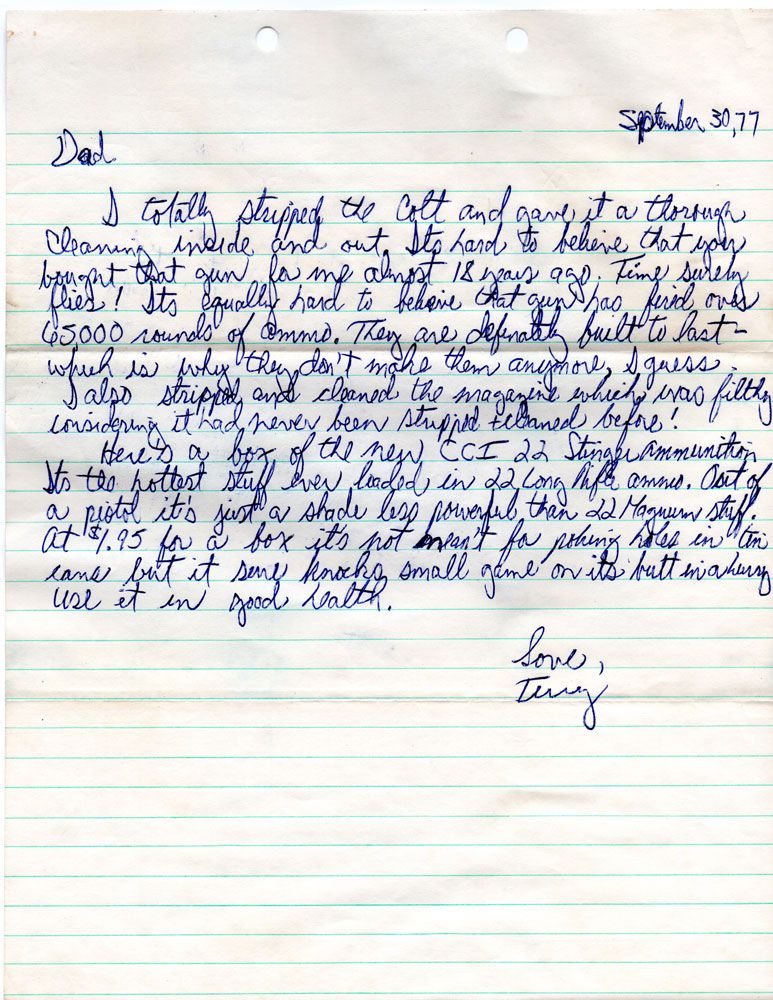 September 30, 77
Dad
I totally stripped the Colt and gave it a thorough
cleaning inside and out. Its hard to believe that you
bought that gun for me almost 18 years ago. Time surely
flies! Its equally hard to believe that gun has fird over
65000 rounds of ammo. They are definately built to last -
which is why they don't make them anymore, I guess.
I also stripped and cleaned the magazine which was filthy
considering it had never been stripped + cleaned before!
Here's a box of the new CCI 22 Stinger ammunition
Its the hottest stuff ever loaded in 22 Long Rifle ammo. Out of
a pistol it's just a shade less powerful than 22 Magnum stuff.
At $1.95 for a box it's not meant for poking holes in tin
cans but it sure knocks small game on its butt in a hurry
Use it in good health.
Love,
Terry